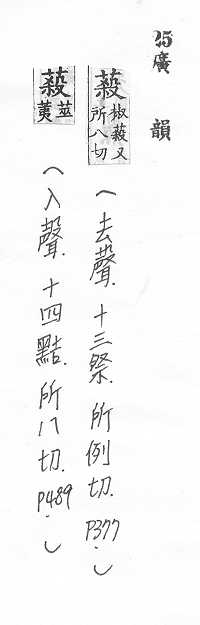 25廣韻
蔱 椒蔱又所八切 (去聲.十三祭.所例切.P377.)
蔱 莁荑 (入聲.十四黠.所八切.P489.)